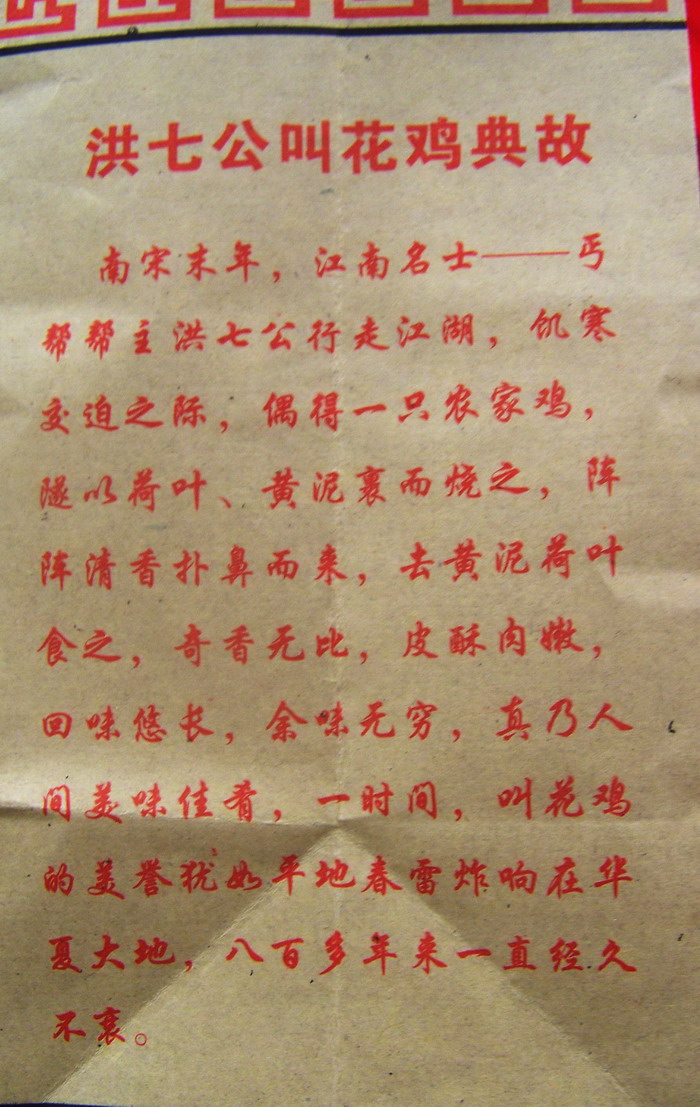 洪七公叫花鸡典故
南宋末年，江南名士——丐
帮帮主洪七公行走江湖，饥寒
交迫之际，偶得一只农家鸡，
遂以荷叶、黄泥裹而烧之，阵
阵清香扑鼻而来，去黄泥荷叶
食之，奇香无比，皮酥肉嫩，
回味悠长，余味无穷，真乃人
间美味佳肴，一时间，叫花鸡
的美誉犹如平地春雷炸响在华
夏大地，八百多年来一直经久
不衰。